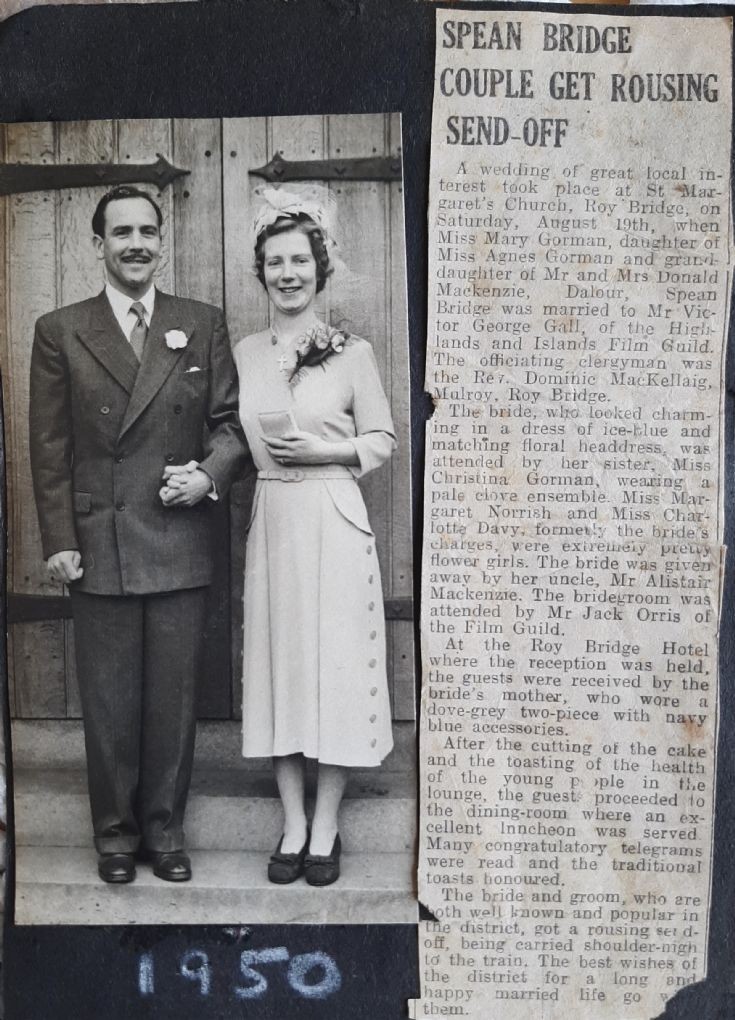 SPEAN BRIDGE
COUPLE GET ROUSING
SEND-OFF
A wedding of great local in-
terest took place at St Mar-
garet's Church, Roy Bridge, on
Saturday, August 19th, when
Miss Mary Gorman, daughter of
Miss Agnes Gorman and grand-
daughter of Mr and Mrs Donald
Mackenzie, Dalour, Spean
Bridge was married to Mr Vic-
tor George Gall, of the High-
lands and Islands Film Guild.
The officiating clergyman was
the Rev. Dominic MacKellaig,
Mulroy, Roy Bridge.
The bride, who looked charm-
ing in a dress of ice-blue and
matching floral headdress, was
attended by her sister, Miss
Christina Gorman, wearing a
pale clove ensemble. Miss Mar-
garet Norrish and Miss Char-
lotte Davy, formerly the bride's
charges, were extremely pretty
flower girls. The bride was given
away by her uncle, Mr Alistair
Mackenzie. The bridegroom was
attended by Mr Jack Orris of
the Film Guild.
At the Roy Bridge Hotel
where the reception was held,
the guests were received by the
bride's mother, who wore a
dove-grey two-piece with navy
blue accessories.
After the cutting of the cake
and the toasting of the health
of the young people in the
lounge, the guests proceeded to
the dining-room where an ex-
cellent lnncheon was served.
Many congratulatory telegrams
were read and the traditional
toasts honoured.
The bride and groom, who are
both well known and popular in
the district, got a rousing send-
off, being carried shoulder-high
to the train. The best wishes of
the district for a long and
happy married life go
them.
1950